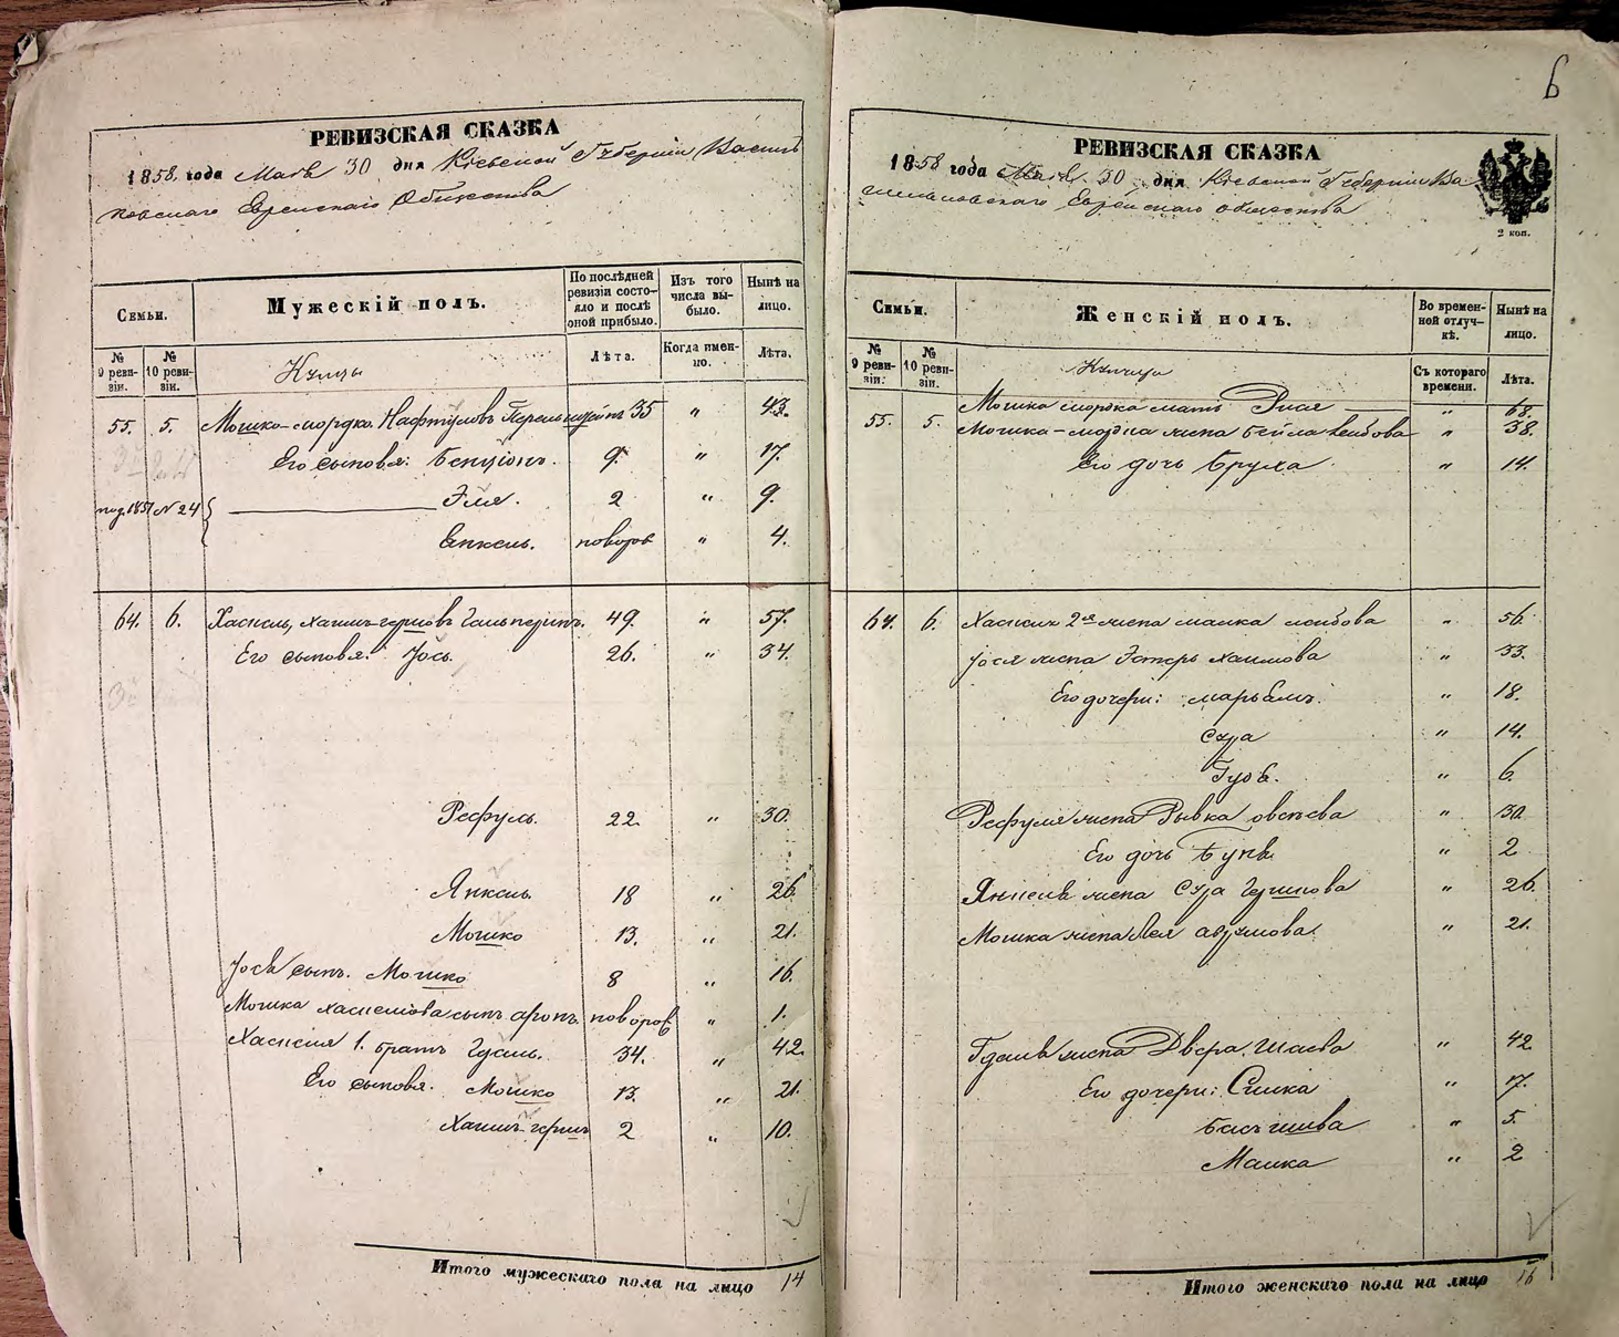 РЕВИЗСКАЯ СКАЗКА
1858 года Мая 30 дня Кіевской Губерніи Василь
ковскаго Еврейскаго Общества
Семьи.
Мужескій полъ.
По послѣдней ревизіи состояло и послѣ оной прибыло.
Изъ того числа выбыло.
Нынѣ на лицо.
№ 9 ревизіи.
№ 10 ревизіи.
Купцы
Лѣта.
Когда именно.
Лѣта.
55. 5. Мошко-мордко Нафтуловъ 35 " 43.
Его сыновья: Бенціонъ. 9. " 17.
1851 № 24 Эля. 2 " 9.
Янкель. новорож " 4.
64. 6. Хаскель, Хаимъ-гершовъ Гальперинъ. 49. " 57.
Его сыновья: Іось. 26. " 34.
Рефуль. 22. " 30.
Янкель. 18 " 26.
Мошко 13. " 21.
Іося сынъ. Мошко 8 " 16.
Мошка Хаскелюва сынъ аронъ. новорож " 1.
Хаскеля 1. братъ Гдаль. 34. " 42.
Его сыновья. Мошко 13. " 21.
Хаимъ-гершъ 2 " 10.
Итого мужескаго пола на лицо 14
6
РЕВИЗСКАЯ СКАЗКА
1858 года Мая 30 дня Кіевской Губерніи Ва
сильковскаго Еврейскаго общества
2 коп.
Семьи.
Женскій полъ.
Во временной отлучкѣ.
Нынѣ на лицо.
№ 9 ревизіи.
№ 10 ревизіи.
Съ котораго времени.
Лѣта.
55. 5. Мошка мордка мать Рися " 68.
Мошка-мордка жена Бейла Лейбова " 38.
Его дочь Бруха. " 14.
64. 6. Хаскеля 2я жена Малка лейбова " 56.
Іося жена Эстеръ хаимова " 33.
Его дочери: Марьямъ. " 18.
Сура " 14.
" 6.
Рефуля жена Рывка овсѣева " 30
Его дочь Буня " 2
Янкеля жена Сура Гершкова " 26.
Мошка жена Лея аврумова " 21.
Гдаля жена Двера. Шаева " 42
Его дочери: Симка " 17.
Басъшива " 5.
Малка " 2
Итого женскаго пола на лицо 16